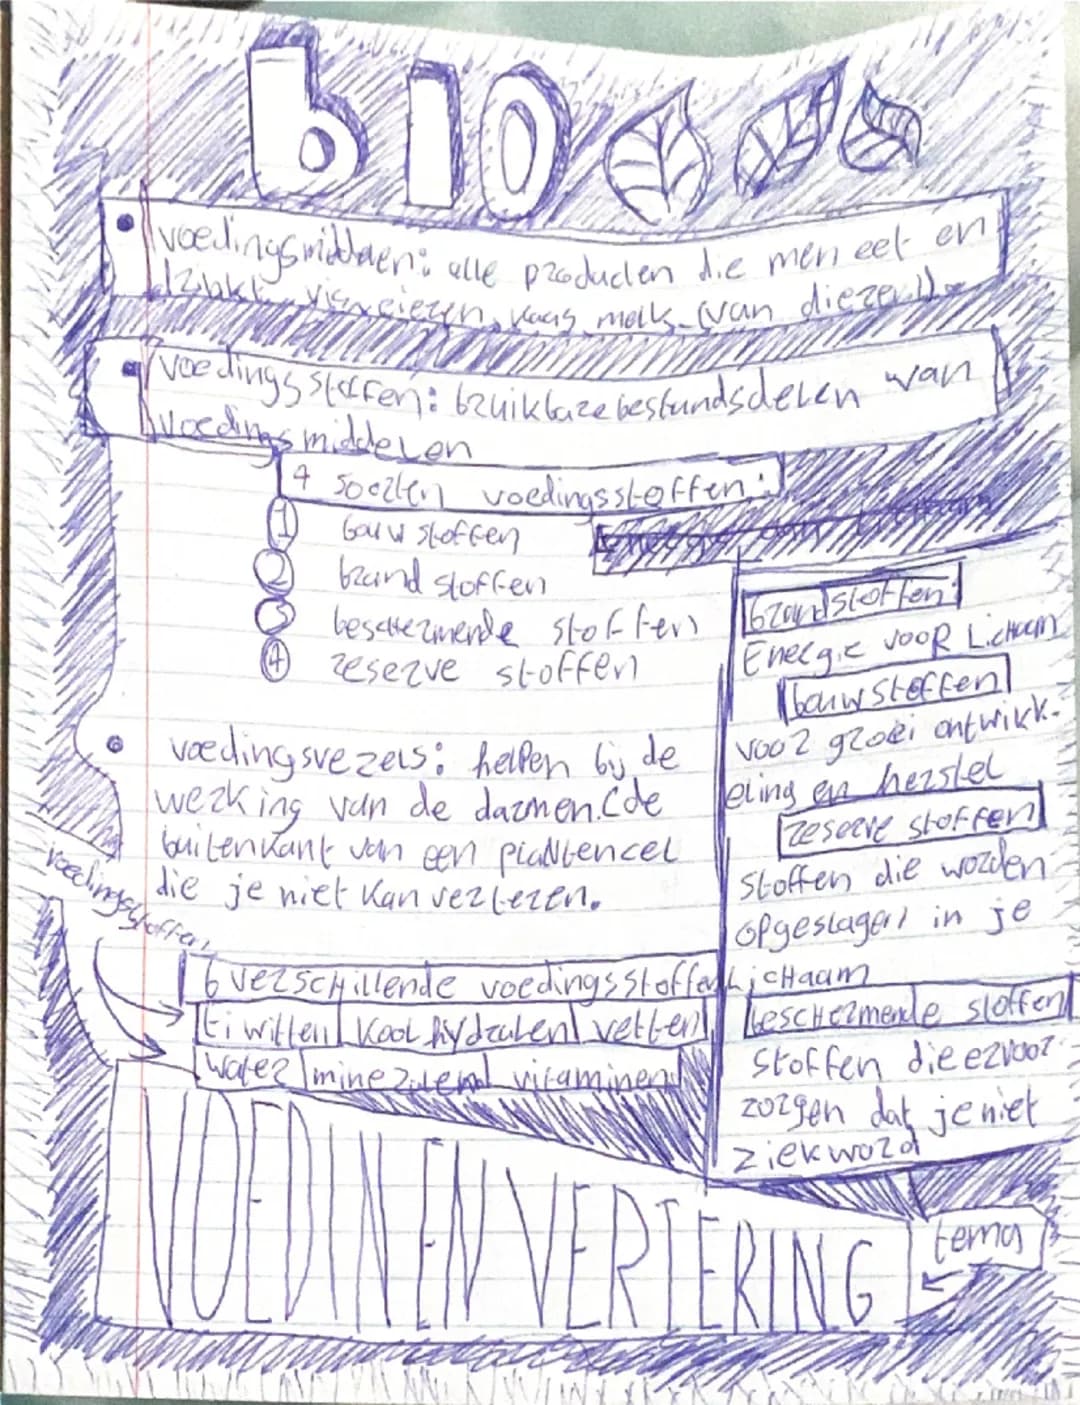 bio
voedingsmiddelen: alle producten die men eet en
drinkt vis vlezen, kaas, melk (van dieren).
voedingsstoffen: bruikbare bestandsdelen van
voedingsmiddelen
4 soorten voedingsstoffen:
1 bouwstoffen
2 brandstoffen
3 beschermende stoffen
4 reserve stoffen
voedingsvezels: helpen bij de
werking van de darmen. (de
buitenkant van een plantencel
die je niet kan verteren.
voedingsstoffen
6 verschillende voedingsstoffen
Eiwitten koolhydraten vetten
water mineralen vitaminen
brandstoffen:
Energie voor Lichaam
bouwstoffen
voor groei ontwikk-
eling en herstel
reserve stoffen
stoffen die worden
opgeslagen in je
Lichaam
beschermende stoffen
stoffen die ervoor
zorgen dat je niet
ziek word
VOEDIN EN VERTERING
tema